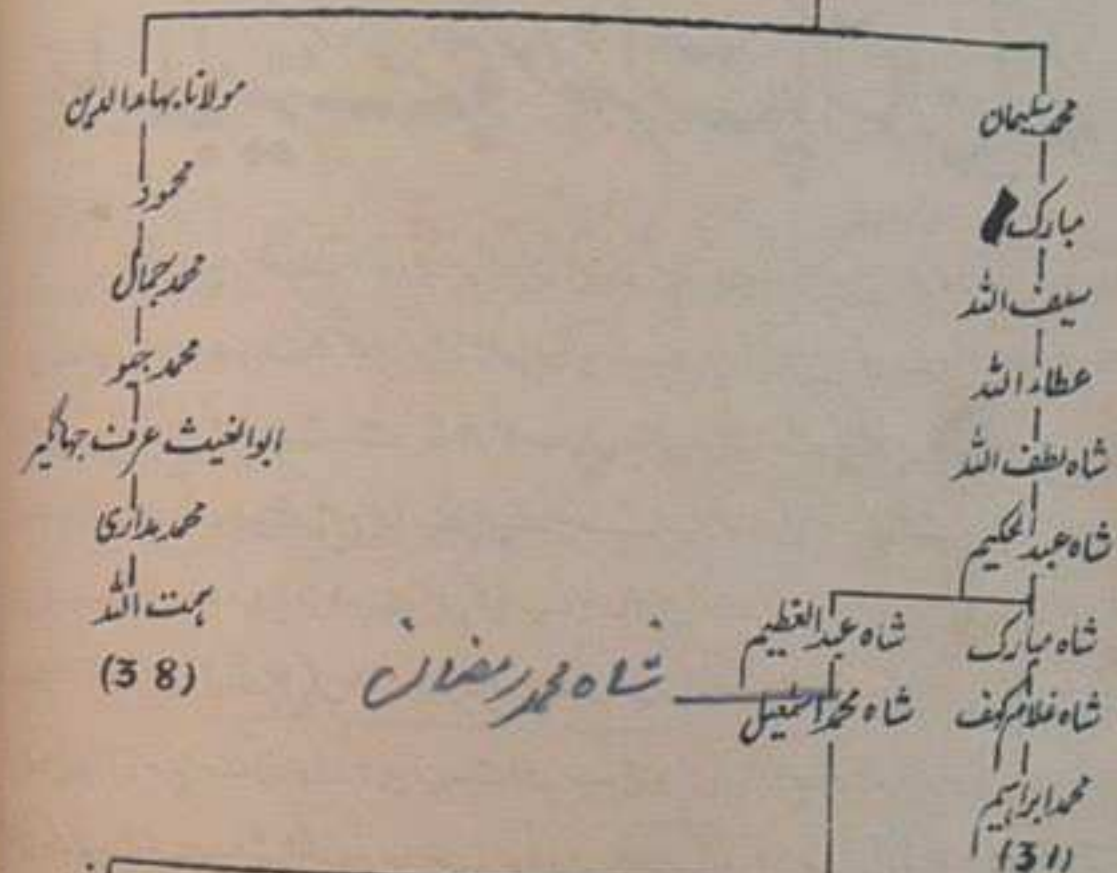 محمد سلیمان
مبارک
سیف اللہ
عطاء اللہ
شاہ لطف اللہ
شاہ عبد الحکیم
شاہ مبارک
شاہ عبد العظیم
شاہ غلام کہف
شاہ محمد اسمٰعیل
شاہ محمد رمضان
محمد ابراہیم
(31)
مولانا بہاء الدین
محمود
محمد جمال
محمد جیو
ابو الغیث عرف جہانگیر
محمد مداری
ہمت اللہ
(38)